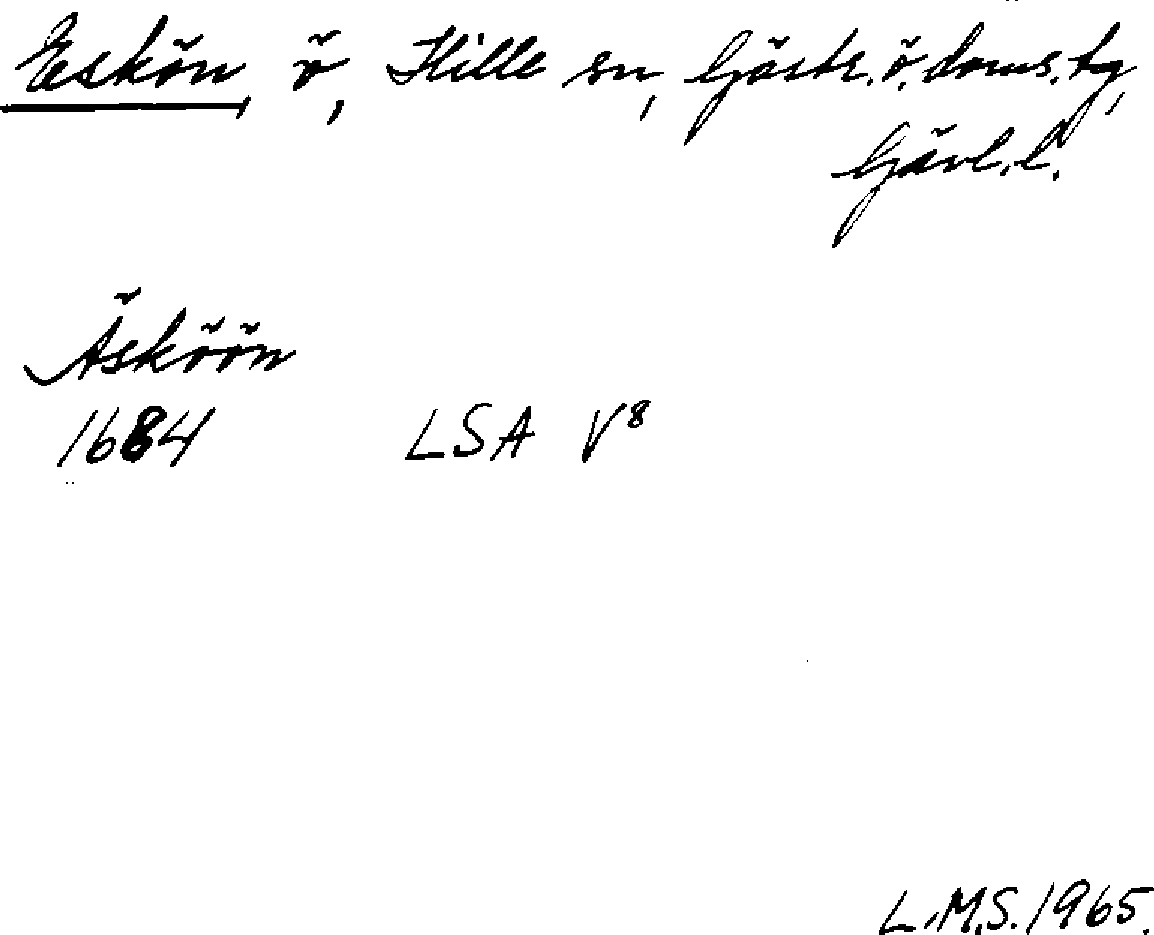 Eskön, ö, Hille sn, Gästr. ö. doms. tg,
Gävl. l.
Äsköön
1684 LSA V⁸
L.M.S. 1965.